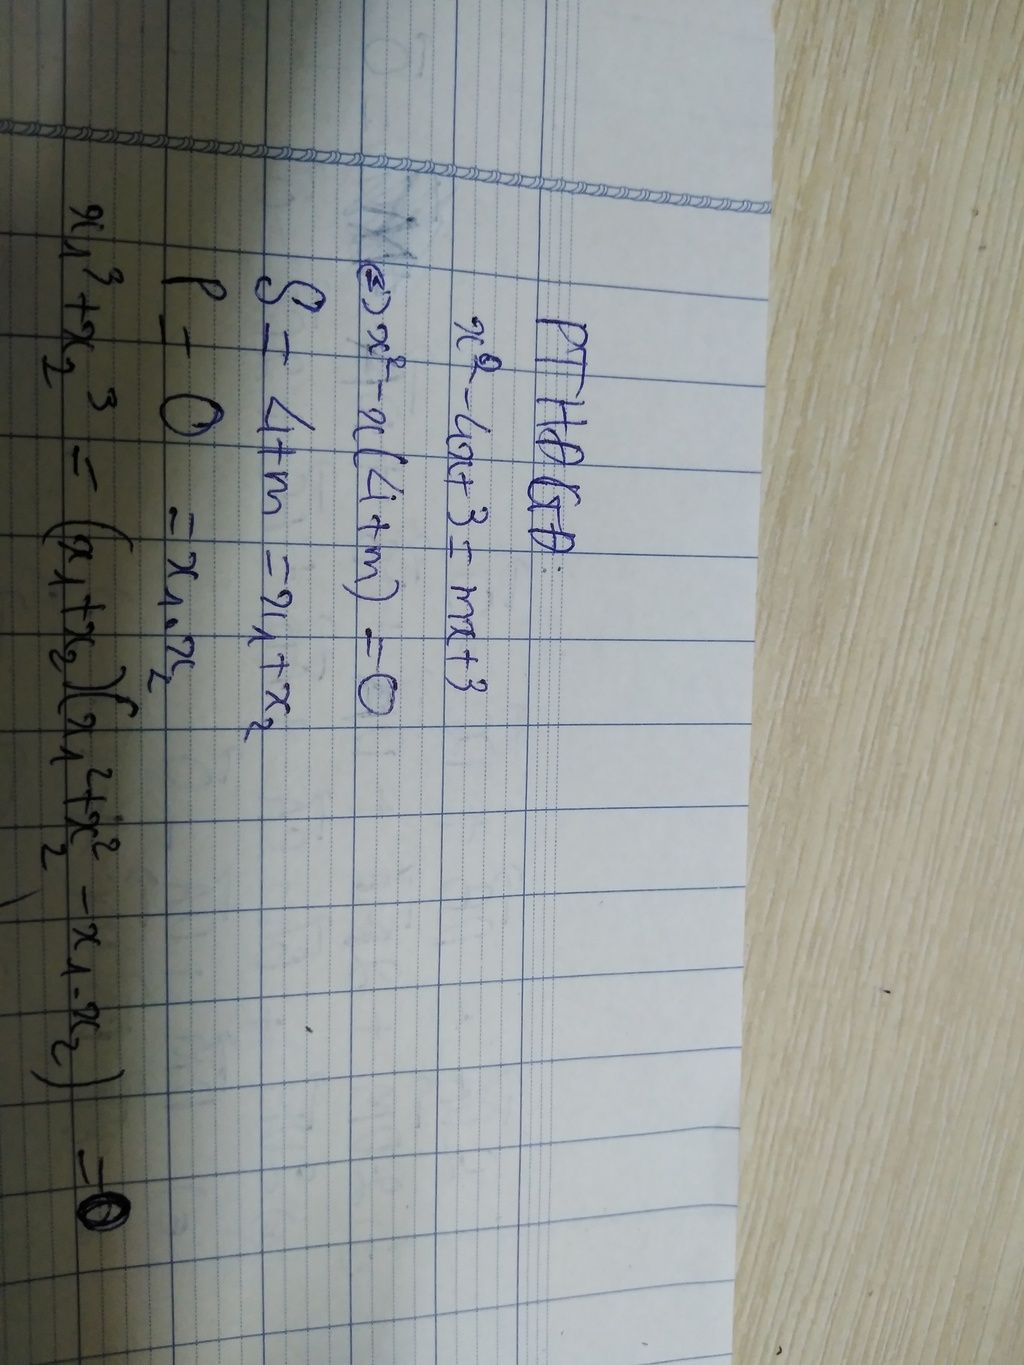 PTHĐGĐ:
x² - 4x + 3 = mx + 3
(=) x² - x(4+m) = 0
S = 4+m = x₁ + x₂
P = 0 = x₁.x₂
x₁³ + x₂³ = (x₁ + x₂)(x₁² + x₂² - x₁.x₂) = 0